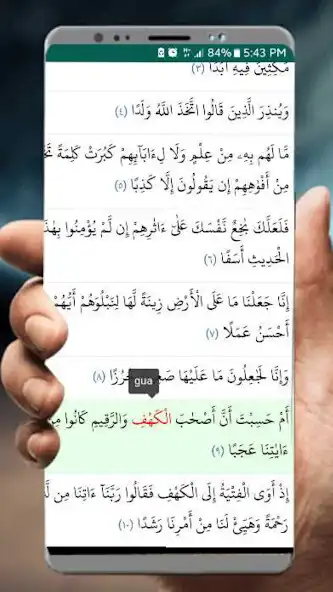 84% 5:43 PM
مَّٰكِثِينَ فِيهِ أَبَدًا ﴿٣﴾
وَيُنذِرَ الَّذِينَ قَالُوا اتَّخَذَ اللَّهُ وَلَدًا ﴿٤﴾
مَّا لَهُم بِهِۦ مِنْ عِلْمٍ وَلَا لِءَابَآئِهِمْ كَبُرَتْ كَلِمَةً
مِنْ أَفْوَٰهِهِمْ إِن يَقُولُونَ إِلَّا كَذِبًا ﴿٥﴾
فَلَعَلَّكَ بَٰخِعٌ نَّفْسَكَ عَلَىٰٓ ءَاثَٰرِهِمْ إِن لَّمْ يُؤْمِنُوا بِهَٰذَا
الْحَدِيثِ أَسَفًا ﴿٦﴾
إِنَّا جَعَلْنَا مَا عَلَى الْأَرْضِ زِينَةً لَّهَا لِنَبْلُوَهُمْ أَيُّهُمْ
أَحْسَنُ عَمَلًا ﴿٧﴾
وَإِنَّا لَجَٰعِلُونَ مَا عَلَيْهَا جُرُزًا ﴿٨﴾
gua
أَمْ حَسِبْتَ أَنَّ أَصْحَٰبَ الْكَهْفِ وَالرَّقِيمِ كَانُوا مِنْ
ءَايَٰتِنَا عَجَبًا ﴿٩﴾
إِذْ أَوَى الْفِتْيَةُ إِلَى الْكَهْفِ فَقَالُوا رَبَّنَآ ءَاتِنَا مِن
رَحْمَةً وَهَيِّئْ لَنَا مِنْ أَمْرِنَا رَشَدًا ﴿١٠﴾